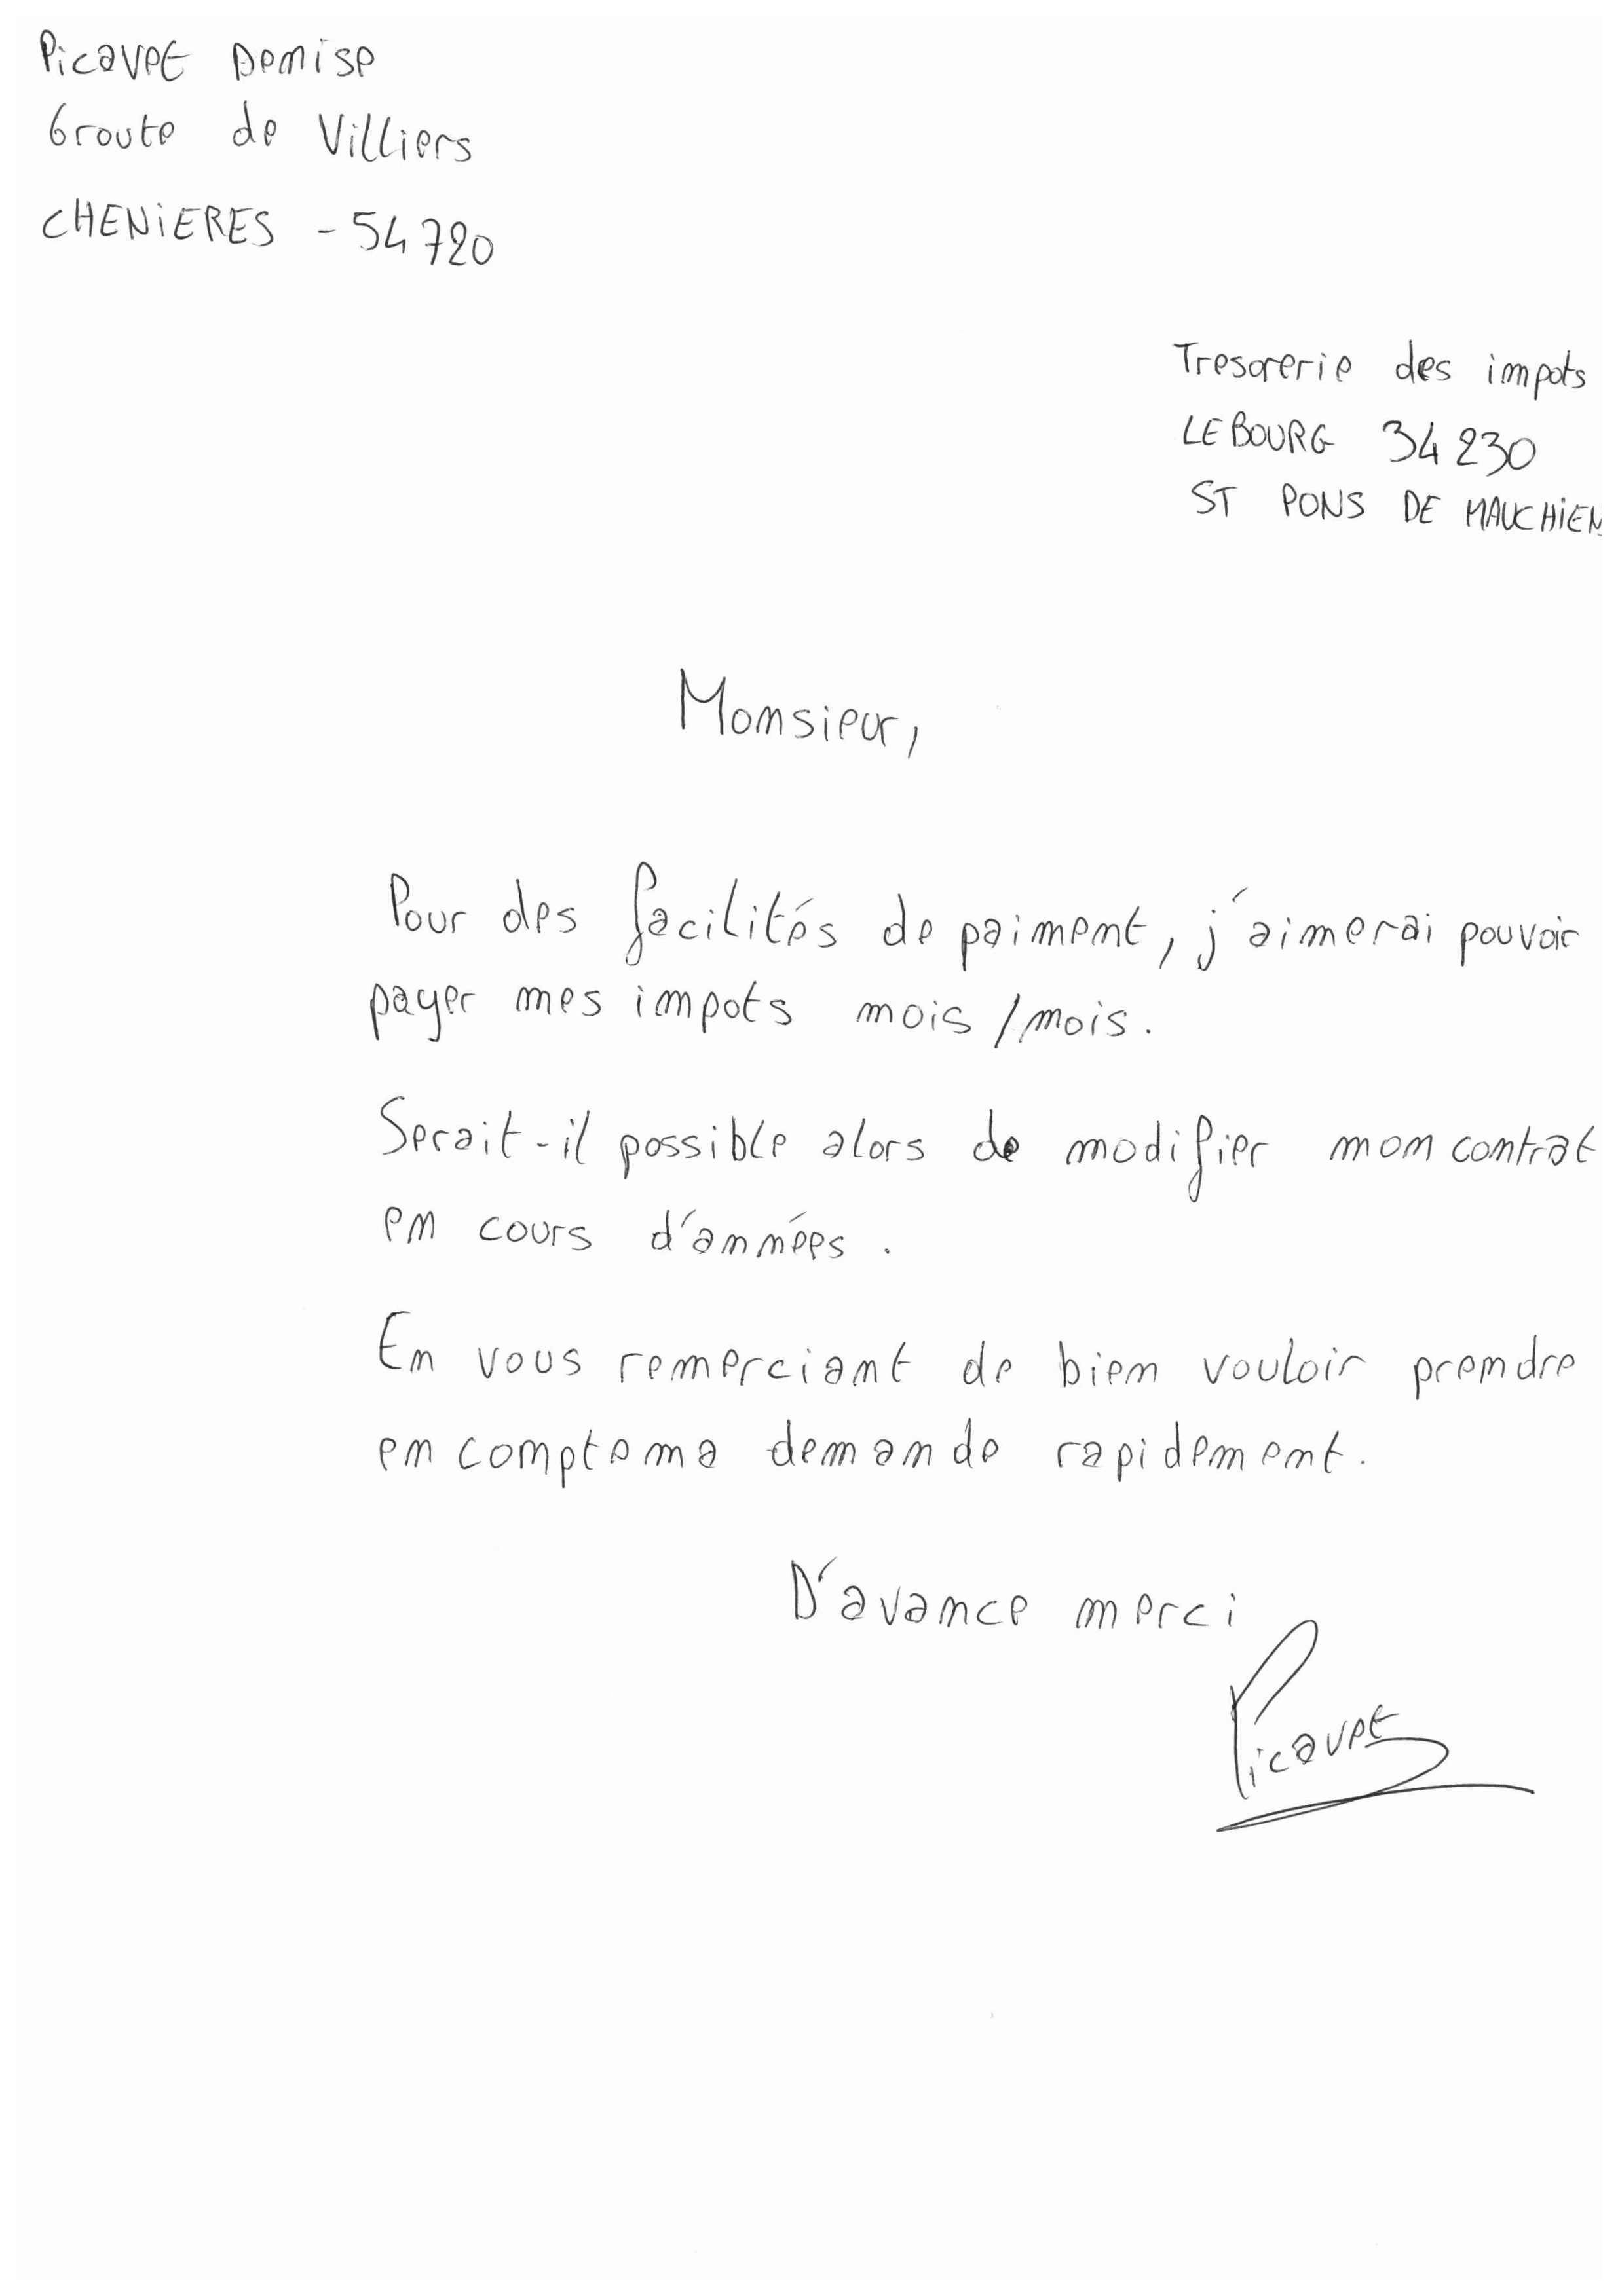 Picavet Denise
6 route de Villiers
CHENIERES - 54720
Tresorerie des impots
LE BOURG 34230
ST PONS DE MAUCHIEN
Monsieur,
Pour des facilités de paiment, j'aimerai pouvoir
payer mes impots mois / mois.
Serait-il possible alors de modifier mon contrat
en cours d'années.
En vous remerciant de bien vouloir prendre
en compte ma demande rapidement.
D'avance merci
Picavet